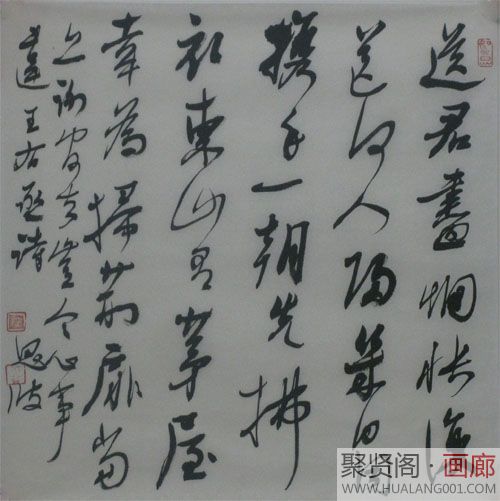 送君盡惆悵復
送何人歸幾日同
攜手一朝先拂
衣東山有茅屋
幸為掃荊扉當
亦謝官去豈令心事
違王右丞詩
聚贤阁·画廊
WWW.HUALANG001.COM